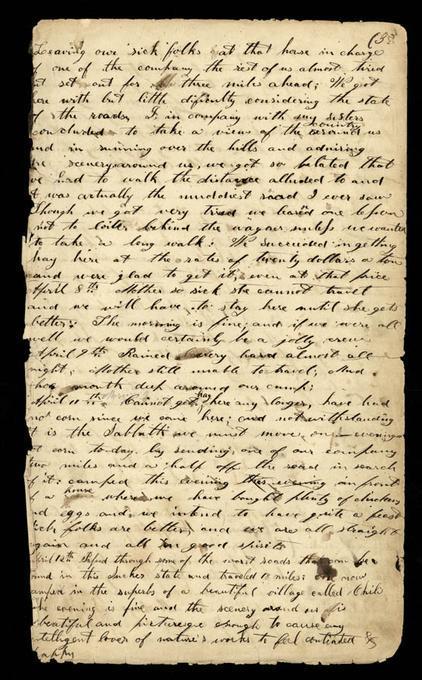 (35
Leaving our sick folks at that house in charge
of one of the company the rest of us almost tired
out set out for three miles ahead; We got
here with but little difficulty considering the state
of the roads, I, in company with my sisters
concluded to take a view of the country around us
and in running over the hills and admiring
the scenery around us, we got so belated that
we had to walk the distance alluded to and
it was actually the muddiest road I ever saw
Though we got very tired we learned one lesson
not to loiter behind the wagons unless we wanted
to take a long walk; We succeeded in getting
hay here at the rates of twenty dollars a ton
and were glad to get it, even at that price
April 8th Mother so sick she cannot travel
and we will have to stay here until she gets
better; The morning is fine, and if we were all
well we would certainly be a jolly crew
April 9th Rained very hard almost all
night; Mother still unable to travel, Mud
hoe mouth deep around our camp;
April 11th Cannot get hay here any longer, have had
not corn since we came here; and notwithstanding
it is the Sabbath we must move, evening
got corn to-day, by sending, one of our company
two miles and a half off the road in search
of it; camped this evening in front
of a house where we have bought plenty of chickens
and eggs and, we intend to have quite a feast
sick folks are better, and we are all straight
again and all in good spirits
April 12th through some of the worst roads that can be
found in this state and traveled 12 miles; are now
camped in the suburbs of a beautiful village called Chili
The evening is fine and the scenery around us is
beautiful and picturesque enough to cause any
intelligent lover of nature's works to feel contented &
happy